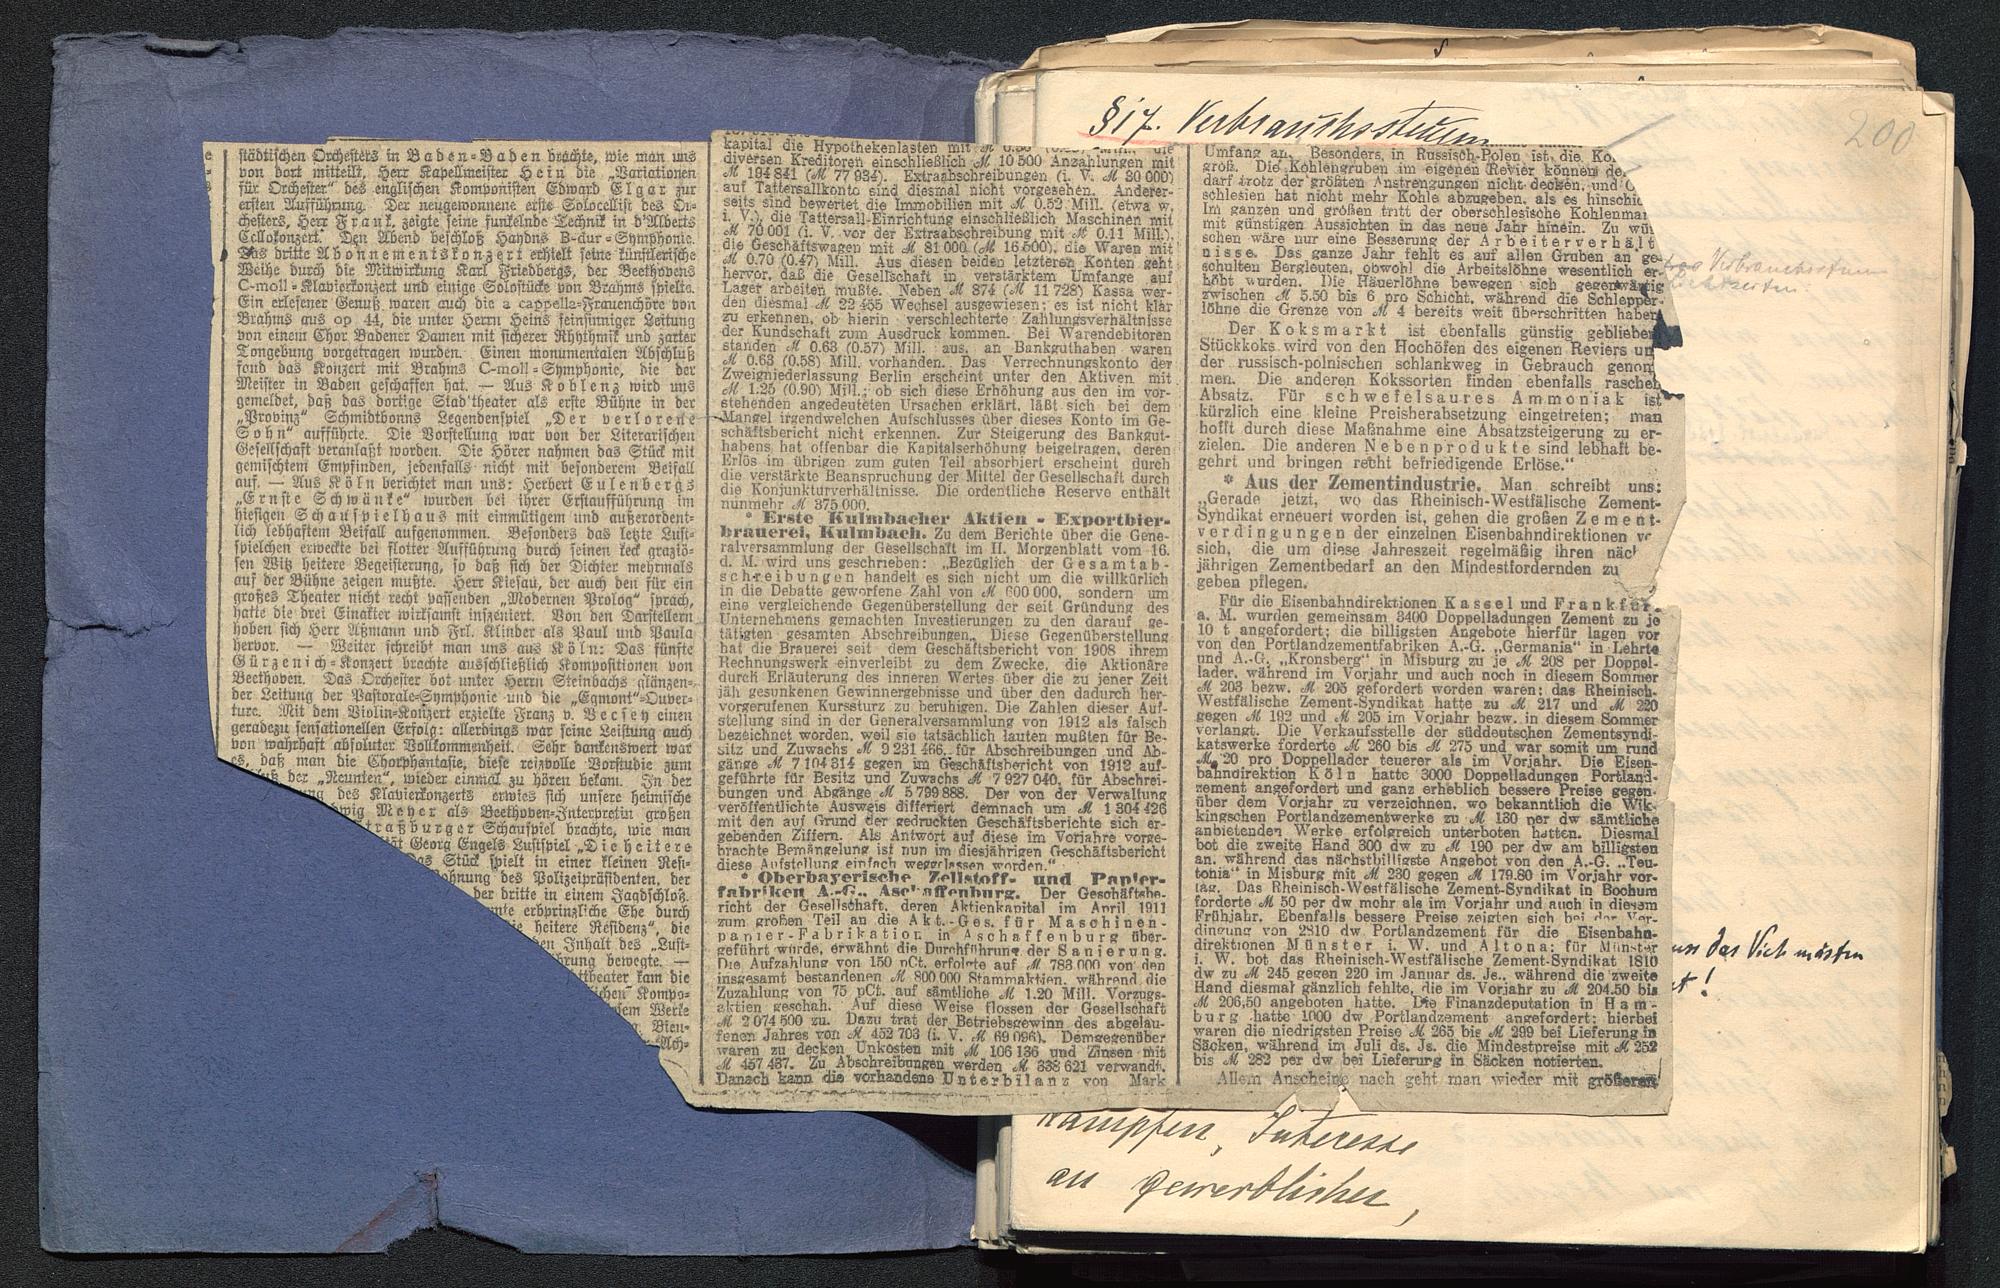 § 17. Verbrauchssteuern
200
städtischen Orchesters in Baden-Baden brachte, wie man uns
von dort mitteilt, Herr Kapellmeister Hein die „Variationen
für Orchester“ des englischen Komponisten Edward Elgar zur
ersten Aufführung. Der neugewonnene erste Solocellist des Or-
chesters, Herr Frank, zeigte seine funkelnde Technik in d'Alberts
Cellokonzert. Den Abend beschloß Haydns B-dur-Symphonie.
Das dritte Abonnementskonzert erhielt seine künstlerische
Weihe durch die Mitwirkung Karl Friedbergs, der Beethovens
C-moll-Klavierkonzert und einige Solostücke von Brahms spielte.
Ein erlesener Genuß waren auch die a cappella-Frauenchöre von
Brahms aus op 44, die unter Herrn Heins feinsinniger Leitung
von einem Chor Badener Damen mit sicherer Rhythmik und zarter
Tongebung vorgetragen wurden. Einen monumentalen Abschluß
fand das Konzert mit Brahms C-moll-Symphonie, die der
Meister in Baden geschaffen hat. — Aus Koblenz wird uns
gemeldet, daß das dortige Stadttheater als erste Bühne in der
„Provinz“ Schmidtbonns Legendenspiel „Der verlorene
Sohn“ aufführte. Die Vorstellung war von der Literarischen
Gesellschaft veranlaßt worden. Die Hörer nahmen das Stück mit
gemischtem Empfinden, jedenfalls nicht mit besonderem Beifall
auf. — Aus Köln berichtet man uns: Herbert Eulenbergs
„Ernste Schwänke“ wurden bei ihrer Erstaufführung im
hiesigen Schauspielhaus mit einmütigem und außerordent-
lich lebhaftem Beifall aufgenommen. Besonders das letzte Lust-
spielchen erweckte bei flotter Aufführung durch seinen keck graziö-
sen Witz heitere Begeisterung, so daß sich der Dichter mehrmals
auf der Bühne zeigen mußte. Herr Kiesau, der auch den für ein
großes Theater nicht recht passenden „Modernen Prolog“ sprach,
hatte die drei Einakter wirksamst inszeniert. Von den Darstellern
hoben sich Herr Aßmann und Frl. Klinder als Paul und Paula
hervor. — Weiter schreibt man uns aus Köln: Das fünfte
Gürzenich-Konzert brachte ausschließlich Kompositionen von
Beethoven. Das Orchester bot unter Herrn Steinbachs glänzen-
der Leitung der Pastorale-Symphonie und die „Egmont“-Ouver-
ture. Mit dem Violin-Konzert erzielte Franz v. Vecsey einen
geradezu sensationellen Erfolg: allerdings war seine Leistung auch
von wahrhaft absoluter Vollkommenheit. Sehr dankenswert war
es, daß man die Chorphantasie, diese reizvolle Vorstudie zum
der „Neunten“, wieder einmal zu hören bekam. In der
des Klavierkonzerts erwies sich unsere heimische
Meyer als Beethoven-Interpretin großen
Straßburger Schauspiel brachte, wie man
Georg Engels Lustspiel „Die heitere
Das Stück spielt in einer kleinen Resi-
des Polizeipräsidenten, der
der dritte in einem Jagdschloß.
erbprinzliche Ehe durch
heitere Residenz“, die
Inhalt des „Lust-
bewegte. —
kam die
Kompo-
dem Werke
Wien-
kapital die Hypothekenlasten mit M 0.50 Mill. die
diversen Kreditoren einschließlich M 10 500 Anzahlungen mit
M 194 841 (M 77 934). Extraabschreibungen (i. V. M 30 000)
auf Tattersallkonto sind diesmal nicht vorgesehen. Anderer-
seits sind bewertet die Immobilien mit M 0.52 Mill. (etwa w.
i. V.), die Tattersall-Einrichtung einschließlich Maschinen mit
M 70 001 (i. V. vor der Extraabschreibung mit M 0.11 Mill.),
die Geschäftswagen mit M 81 000 (M 16 500), die Waren mit
M 0.70 (0.47) Mill. Aus diesen beiden letzteren Konten geht
hervor, daß die Gesellschaft in verstärktem Umfange auf
Lager arbeiten mußte. Neben M 874 (M 11 728) Kassa wer-
den diesmal M 22 455 Wechsel ausgewiesen; es ist nicht klar
zu erkennen, ob hierin verschlechterte Zahlungsverhältnisse
der Kundschaft zum Ausdruck kommen. Bei Warendebitoren
standen M 0.63 (0.57) Mill. aus, an Bankguthaben waren
M 0.63 (0.58) Mill. vorhanden. Das Verrechnungskonto der
Zweigniederlassung Berlin erscheint unter den Aktiven mit
M 1.25 (0.90) Mill.; ob sich diese Erhöhung aus den im vor-
stehenden angedeuteten Ursachen erklärt, läßt sich bei dem
Mangel irgendwelchen Aufschlusses über dieses Konto im Ge-
schäftsbericht nicht erkennen. Zur Steigerung des Bankgut-
habens hat offenbar die Kapitalserhöhung beigetragen, deren
Erlös im übrigen zum guten Teil absorbiert erscheint durch
die verstärkte Beanspruchung der Mittel der Gesellschaft durch
die Konjunkturverhältnisse. Die ordentliche Reserve enthält
nunmehr M 375 000.
* Erste Kulmbacher Aktien-Exportbier-
brauerei, Kulmbach. Zu dem Berichte über die Gene-
ralversammlung der Gesellschaft im II. Morgenblatt vom 16.
d. M. wird uns geschrieben: „Bezüglich der Gesamtab-
schreibungen handelt es sich nicht um die willkürlich
in die Debatte geworfene Zahl von M 600 000, sondern um
eine vergleichende Gegenüberstellung der seit Gründung des
Unternehmens gemachten Investierungen zu den darauf ge-
tätigten gesamten Abschreibungen. Diese Gegenüberstellung
hat die Brauerei seit dem Geschäftsbericht von 1908 ihrem
Rechnungswerk einverleibt zu dem Zwecke, die Aktionäre
durch Erläuterung des inneren Wertes über die zu jener Zeit
jäh gesunkenen Gewinnergebnisse und über den dadurch her-
vorgerufenen Kurssturz zu beruhigen. Die Zahlen dieser Auf-
stellung sind in der Generalversammlung von 1912 als falsch
bezeichnet worden, weil sie tatsächlich lauten mußten für Be-
sitz und Zuwachs M 9 231 466, für Abschreibungen und Ab-
gänge M 7 104 314 gegen im Geschäftsbericht von 1912 auf-
geführte für Besitz und Zuwachs M 7 927 040, für Abschrei-
bungen und Abgänge M 5 799 888. Der von der Verwaltung
veröffentlichte Ausweis differiert demnach um M 1 304 426
mit den auf Grund der gedruckten Geschäftsberichte sich er-
gebenden Ziffern. Als Antwort auf diese im Vorjahre vorge-
brachte Bemängelung ist nun im diesjährigen Geschäftsbericht
diese Aufstellung einfach weggelassen worden.“
* Oberbayerische Zellstoff- und Papier-
fabriken A.-G., Aschaffenburg. Der Geschäftsbe-
richt der Gesellschaft, deren Aktienkapital im April 1911
zum großen Teil an die Akt.-Ges. für Maschinen-
papier-Fabrikation in Aschaffenburg über-
geführt wurde, erwähnt die Durchführung der Sanierung.
Die Aufzahlung von 150 pCt. erfolgte auf M 783 000 von den
insgesamt bestandenen M 800 000 Stammaktien, während die
Zuzahlung von 75 pCt. auf sämtliche M 1.20 Mill. Vorzugs-
aktien geschah. Auf diese Weise flossen der Gesellschaft
M 2 074 500 zu. Dazu trat der Betriebsgewinn des abgelau-
fenen Jahres von M 452 703 (i. V. M 69 096). Demgegenüber
waren zu decken Unkosten mit M 106 136 und Zinsen mit
M 457 437. Zu Abschreibungen werden M 338 621 verwandt.
Danach kann die vorhandene Unterbilanz von Mark
Umfang an. Besonders in Russisch-Polen ist die
groß. Die Kohlengruben im eigenen Revier können
darf trotz der größten Anstrengungen nicht decken, und
schlesien hat nicht mehr Kohle abzugeben, als es
Im ganzen und großen tritt der oberschlesische
mit günstigen Aussichten in das neue Jahr hinein. Zu
schen wäre nur eine Besserung der Arbeiterverhält
nisse. Das ganze Jahr fehlt es auf allen Gruben an ge-
schulten Bergleuten, obwohl die Arbeitslöhne wesentlich er-
höht wurden. Die Häuerlöhne bewegen sich gegenwärtig
zwischen M 5.50 bis 6 pro Schicht, während die Schlepper-
löhne die Grenze von M 4 bereits weit überschritten haben
Der Koksmarkt ist ebenfalls günstig geblieben
Stückkoks wird von den Hochöfen des eigenen Reviers un
der russisch-polnischen schlankweg in Gebrauch genom
men. Die anderen Kokssorten finden ebenfalls raschen
Absatz. Für schwefelsaures Ammoniak ist
kürzlich eine kleine Preisherabsetzung eingetreten; man
hofft durch diese Maßnahme eine Absatzsteigerung zu er-
zielen. Die anderen Nebenprodukte sind lebhaft be-
gehrt und bringen recht befriedigende Erlöse.“
* Aus der Zementindustrie. Man schreibt uns:
„Gerade jetzt, wo das Rheinisch-Westfälische Zement-
Syndikat erneuert worden ist, gehen die großen Zement-
verdingungen der einzelnen Eisenbahndirektionen
sich, die um diese Jahreszeit regelmäßig ihren
jährigen Zementbedarf an den Mindestfordernden zu
geben pflegen.
Für die Eisenbahndirektionen Kassel und Frankfur
a. M. wurden gemeinsam 3400 Doppelladungen Zement zu je
10 t angefordert; die billigsten Angebote hierfür lagen vor
von den Portlandzementfabriken A.-G. „Germania“ in Lehrte
und A.-G. „Kronsberg“ in Misburg zu je M 208 per Doppel-
lader, während im Vorjahr und auch noch in diesem Sommer
M 203 bezw. M 205 gefordert worden waren; das Rheinisch-
Westfälische Zement-Syndikat hatte zu M 217 und M 220
gegen M 192 und M 205 im Vorjahr bezw. in diesem Sommer
verlangt. Die Verkaufsstelle der süddeutschen Zementsyndi-
katswerke forderte M 260 bis M 275 und war somit um rund
M 20 pro Doppellader teuerer als im Vorjahr. Die Eisen-
bahndirektion Köln hatte 3000 Doppelladungen Portland-
zement angefordert und ganz erheblich bessere Preise gegen-
über dem Vorjahr zu verzeichnen, wo bekanntlich die Wik-
kingschen Portlandzementwerke zu M 130 per dw sämtliche
anbietenden Werke erfolgreich unterboten hatten. Diesmal
bot die zweite Hand 300 dw zu M 190 per dw am billigsten
an, während das nächstbilligste Angebot von den A.-G. „Teu-
tonia“ in Misburg mit M 230 gegen M 179.80 im Vorjahr vor-
lag. Das Rheinisch-Westfälische Zement-Syndikat in Bochum
forderte M 50 per dw mehr als im Vorjahr und auch in diesem
Frühjahr. Ebenfalls bessere Preise zeigten sich bei der Ver-
dingung von 2810 dw Portlandzement für die Eisenbahn-
direktionen Münster i. W. und Altona; für Münster
i. W. bot das Rheinisch-Westfälische Zement-Syndikat 1810
dw zu M 245 gegen 220 im Januar ds. Js., während die zweite
Hand diesmal gänzlich fehlte, die im Vorjahr zu M 204.50 bis
M 206,50 angeboten hatte. Die Finanzdeputation in Ham-
burg hatte 1000 dw Portlandzement angefordert; hierbei
waren die niedrigsten Preise M 265 bis M 299 bei Lieferung in
Säcken, während im Juli ds. Js. die Mindestpreise mit M 252
bis M 282 per dw bei Lieferung in Säcken notierten.
Allem Anscheine nach geht man wieder mit größeren
Verbrauchssteuern
das Vieh mästen
Kämpfen, Interesse
an gewerblichen,